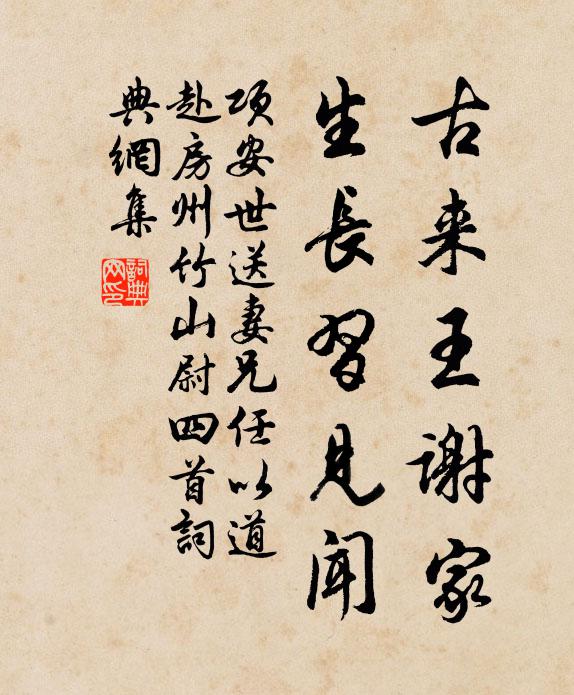 古来王谢家
生長習見聞
项安世送妻兄任以道
赴房州竹山尉四首詞
典網集
詞典网印